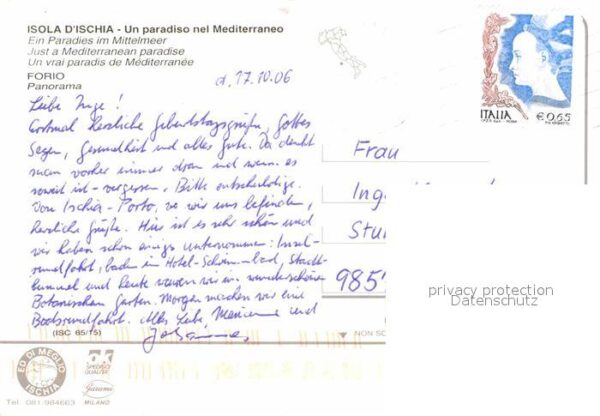 ISOLA D'ISCHIA - Un paradiso nel Mediterraneo
Ein Paradies im Mittelmeer
Just a Mediterranean paradise
Un vrai paradis de Méditerranée
FORIO
Panorama
d. 17.10.06
Liebe Inge!
Erstmal herzliche Geburtstagsgrüße, Gottes
Segen, Gesundheit und alles Gute. Da denkt
man vorher immer dran und wenn es
soweit ist - vergessen. Bitte entschuldige.
Von Ischia-Porto, wo wir uns befinden,
herzliche Grüße. Hier ist es sehr schön und
wir haben schon einiges unternommen: Insel-
rundfahrt, baden im Hotel-Schwimmbad, Stadt-
bummel und heute waren wir im wunderschönen
Botanischen Garten. Morgen machen wir eine
Bootsrundfahrt. Alles Liebe, Marianne und
Johannes
(ISC 65/15)
ITALIA
€0,65
Frau
Ing
Stu
985
privacy protection
Datenschutz
NON SC
ED DI MEGLIO
ISCHIA
Tel. 081.984663
OK
SPECIALE
QUALITA'
Garami
MILANO